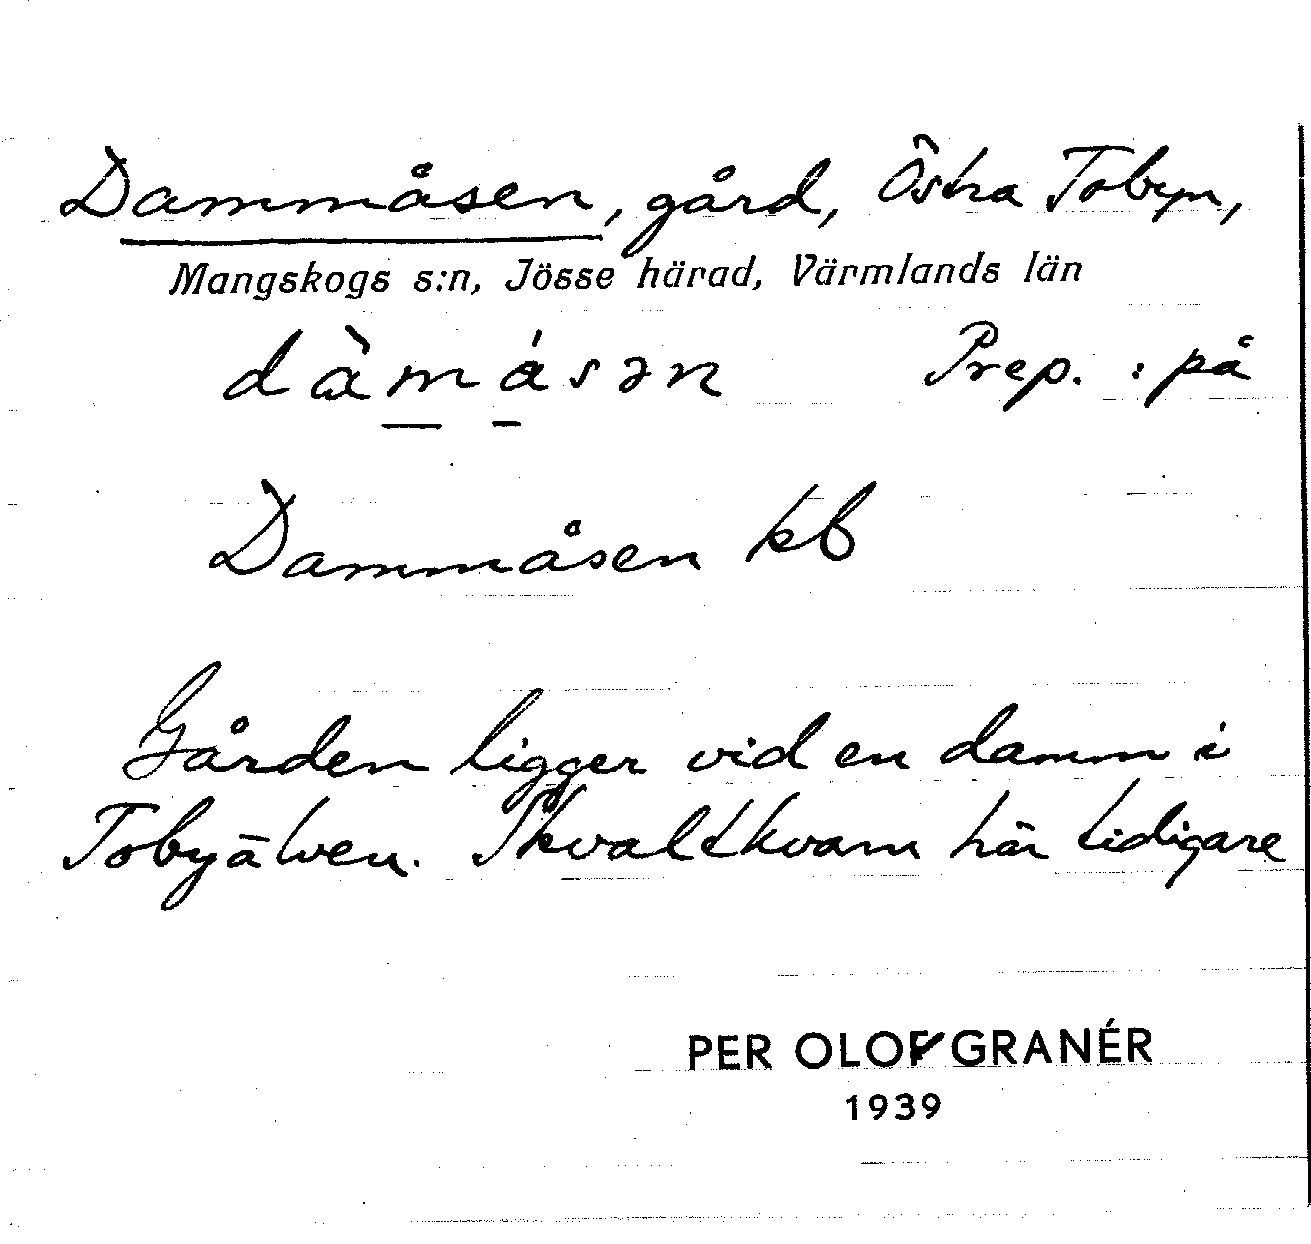 Dammåsen, gård, Östra Tobyn,
Mangskogs s:n, Jösse härad, Värmlands län
dàmásən Prep. : på
Dammåsen kb
Gården ligger vid en damm i
Tobyälven. Skvaltkvarn här tidigare
PER OLOF GRANÉR
1939